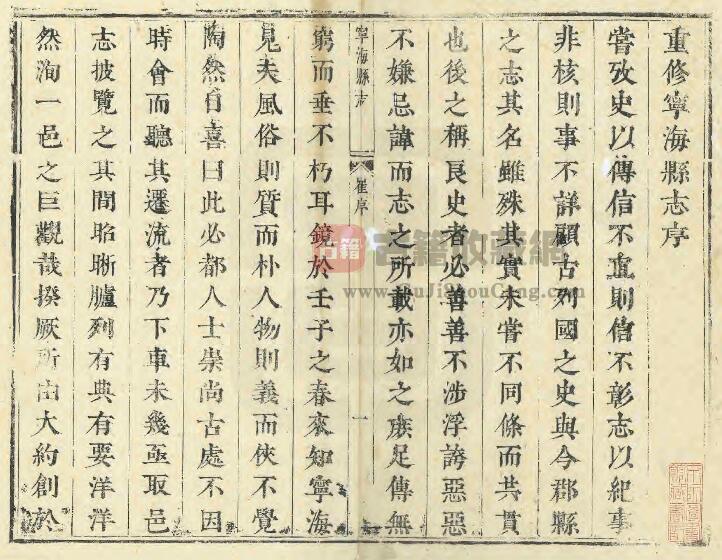 重修寧海縣志序
嘗攷史以傳信不直則信不彰志以紀事
非核則事不詳顧古列國之史與今郡縣
之志其名雖殊其實未嘗不同條而共貫
也後之稱良史者必善善不涉浮誇惡惡
不嫌忌諱而志之所載亦如之庻足傳無
寧海縣志
崔序
一
窮而垂不朽耳鏡於壬子之春來知寧海
見夫風俗則質而朴人物則義而俠不覺
陶然自喜曰此必都人士崇尚古處不因
時會而聽其遷流者乃下車未幾亟取邑
志披覽之其間昭晰臚列有典有要洋洋
然洵一邑之巨觀哉揆厥所由大約創於
古籍
古籍收藏網
www.GuJiShouCang.com